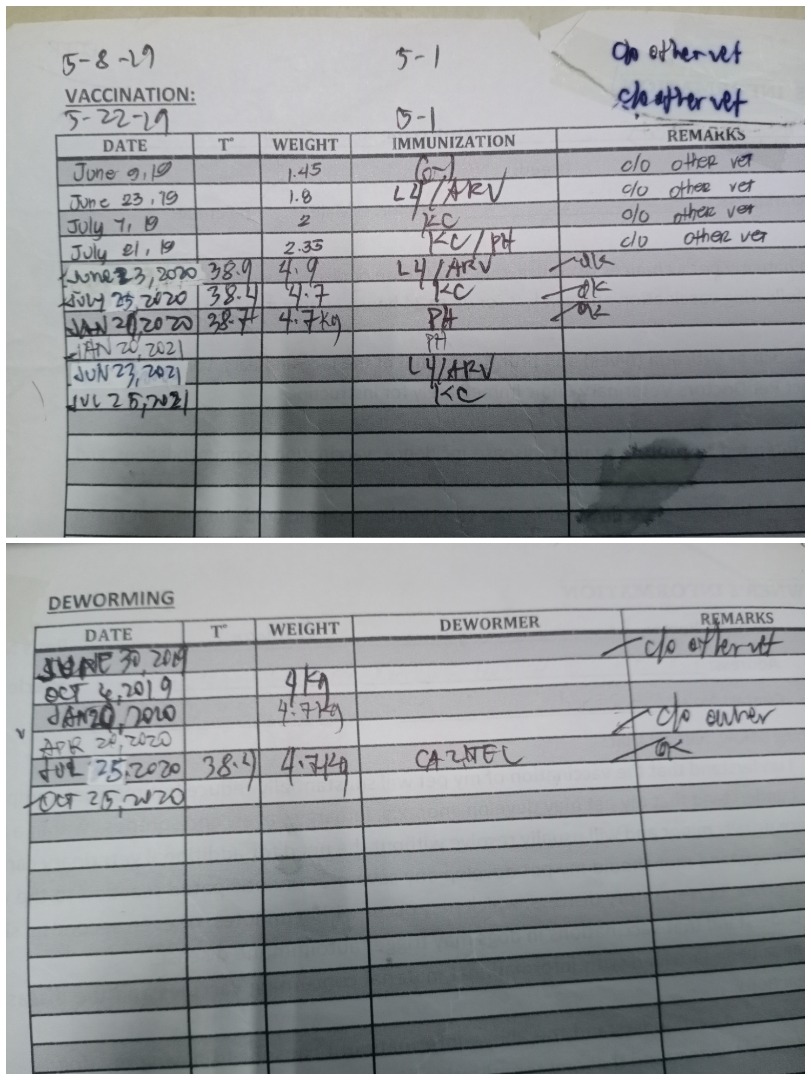 5-8-19 5-1 c/o other vet
VACCINATION: c/o other vet
5-22-19 5-1
DATE T° WEIGHT IMMUNIZATION REMARKS
June 9, 19 1.45 c/o other vet
June 23, 19 1.8 L4/ARV c/o other vet
July 7, 19 2 KC c/o other vet
July 21, 19 2.35 KC/PH c/o other vet
June 23, 2020 38.9 4.9 L4/ARV ok
July 25, 2020 38.4 4.7 KC ok
JAN 20, 2020 38.7 4.7kg PH ok
JAN 20, 2021 PH
JUN 23, 2021 L4/ARV
JUL 25, 2021 KC
DEWORMING
DATE T° WEIGHT DEWORMER REMARKS
JUNE 30, 2019 c/o other vet
OCT 4, 2019 4kg
JAN 20, 2020 4.7kg
APR 20, 2020 c/o owner
JUL 25, 2020 38.4 4.7kg CAZITEL ok
OCT 25, 2020